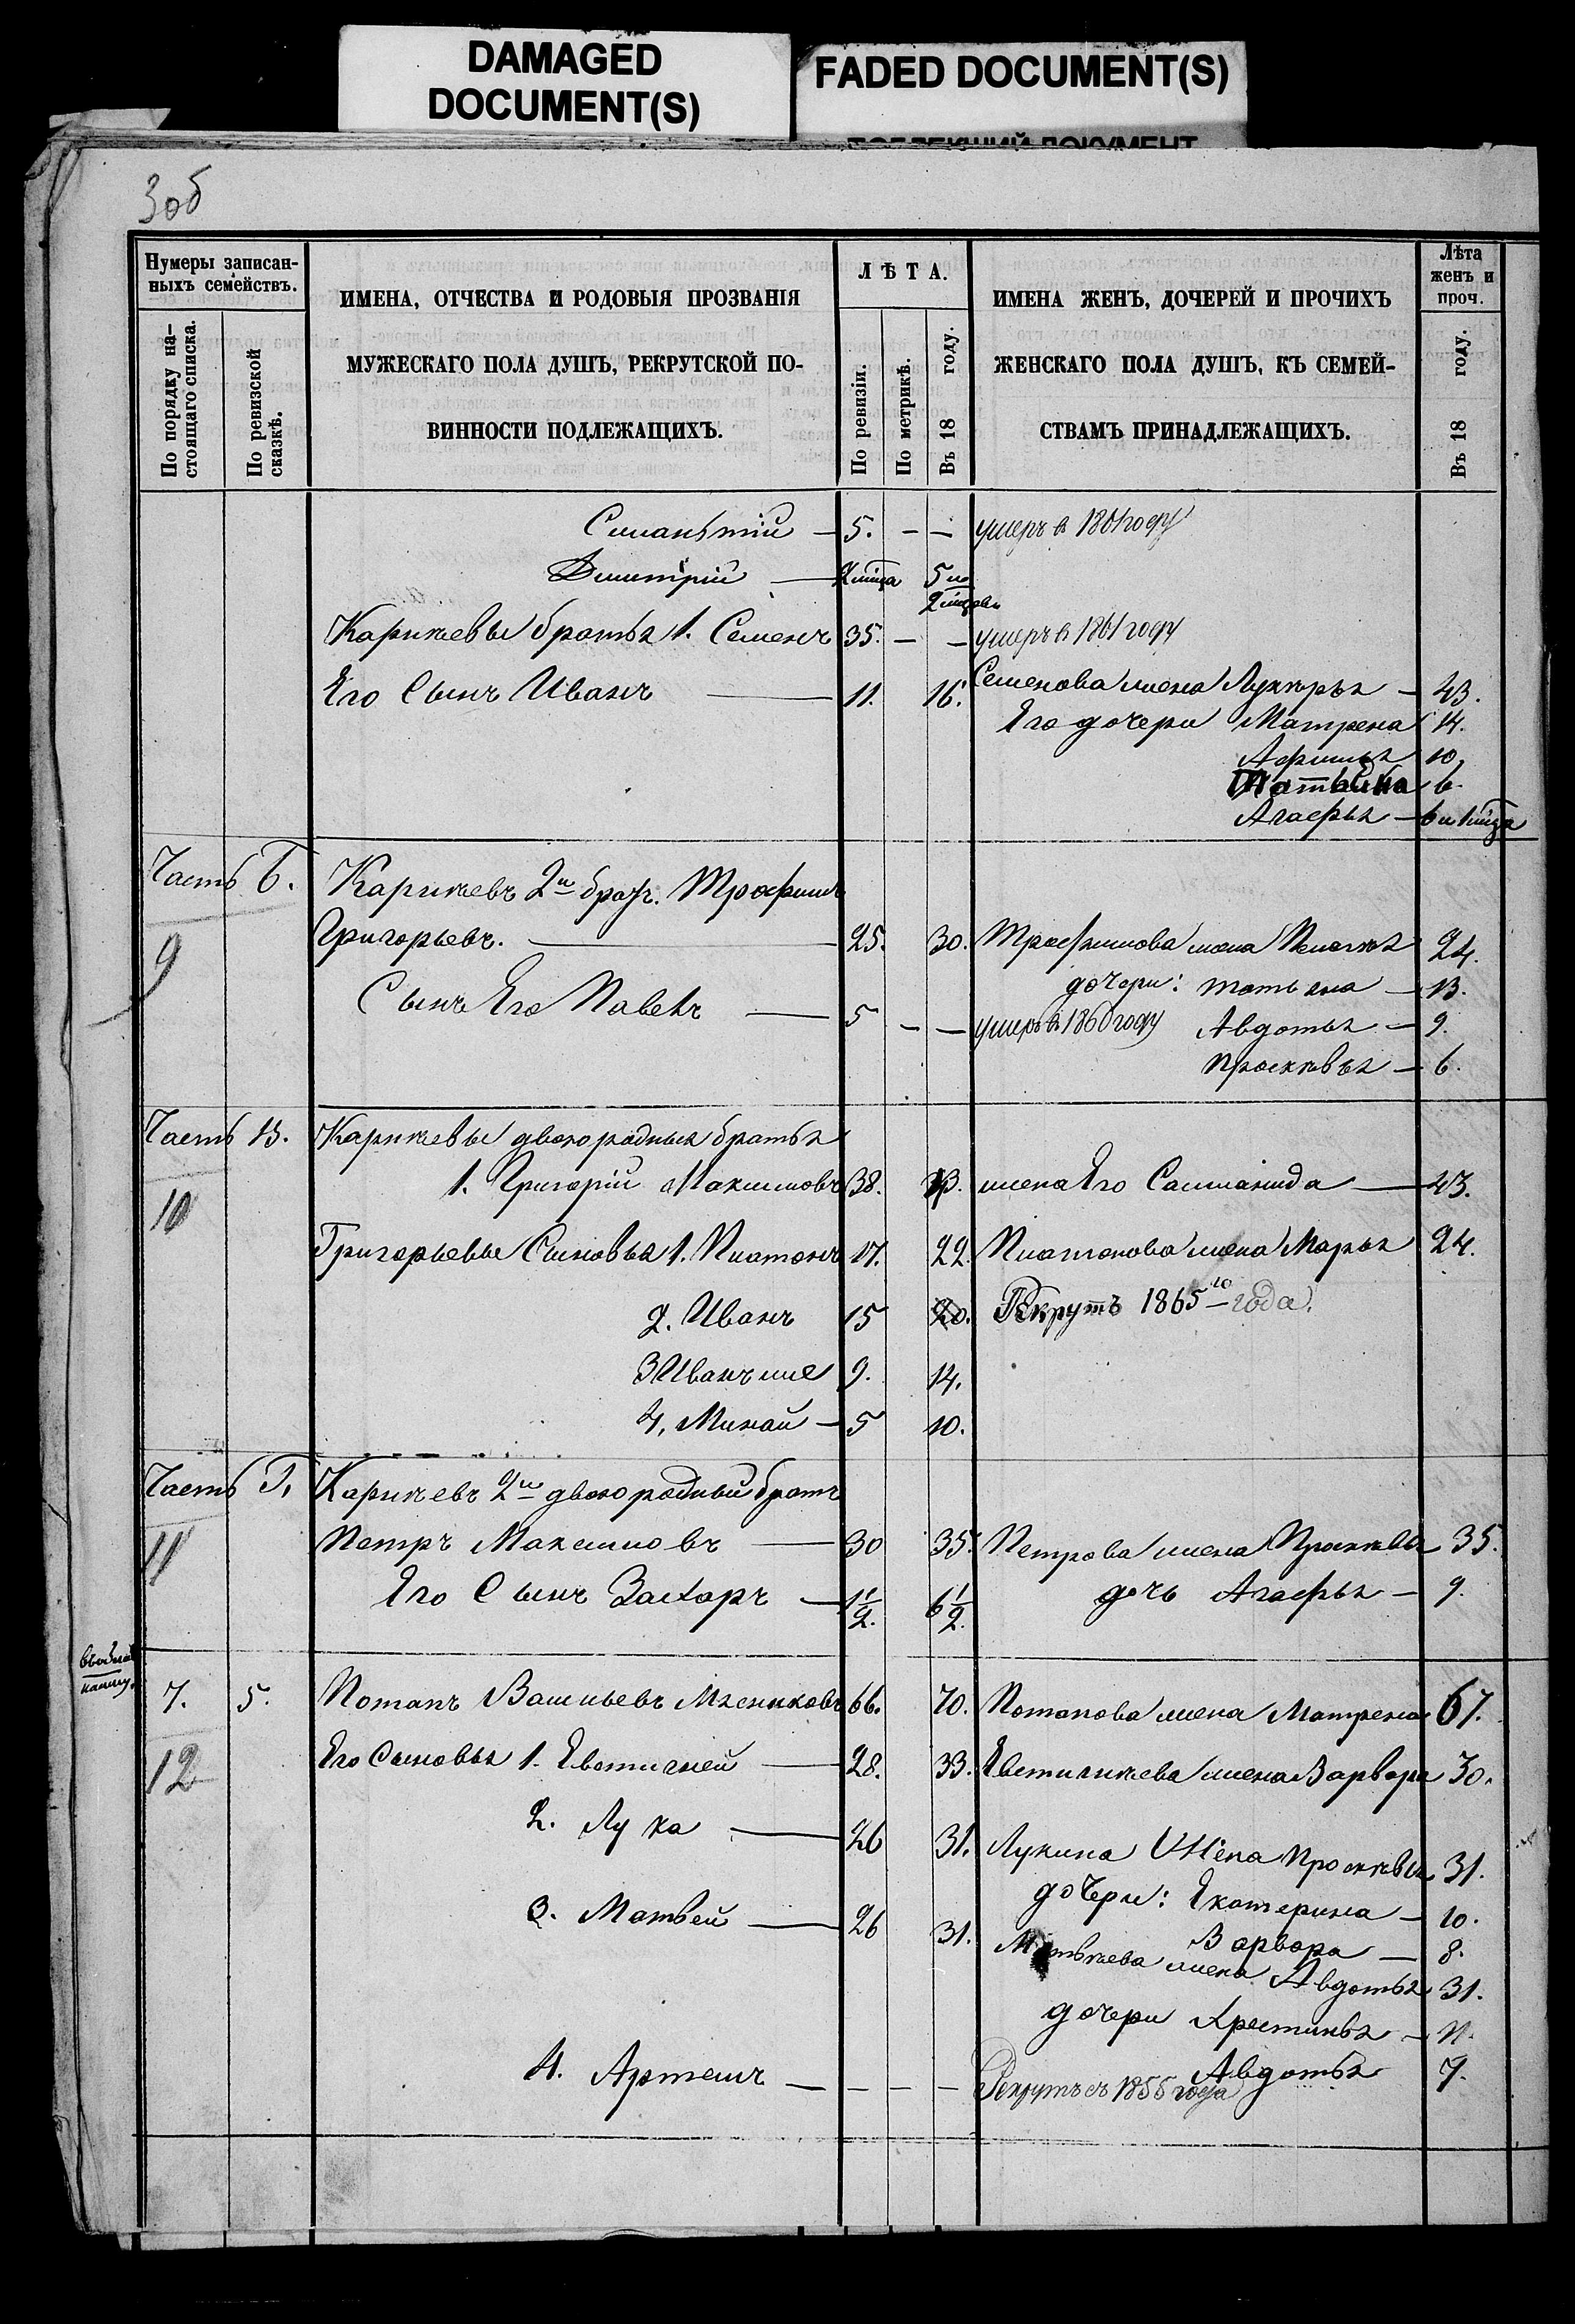 DAMAGED
DOCUMENT(S)
FADED DOCUMENT(S)
3об
Нумеры записан-
ныхъ семействъ.
По порядку на-
стоящаго списка.
По ревизской
сказкѣ.
ИМЕНА, ОТЧЕСТВА И РОДОВЫЯ ПРОЗВАНІЯ
МУЖЕСКАГО ПОЛА ДУШЪ, РЕКРУТСКОЙ ПО-
ВИННОСТИ ПОДЛЕЖАЩИХЪ.
ЛѢТА.
По ревизіи.
По метрикѣ.
Въ 18 году.
ИМЕНА ЖЕНЪ, ДОЧЕРЕЙ И ПРОЧИХЪ
ЖЕНСКАГО ПОЛА ДУШЪ, КЪ СЕМЕЙ-
СТВАМЪ ПРИНАДЛЕЖАЩИХЪ.
Лѣта
женъ и
проч.
Въ 18 году.
5. — — умеръ в 1861 году
Дмитрій —
братья 1. Семенъ 35. — — умеръ в 1861 году
Его Сынъ Иванъ — 11. 16. Семенова жена Лукерья — 43.
Его дочери Матрена 14.
10.
Татьяна 6.
Агафья —
Часть Б. 2й братъ. Трофимъ
9 Григорьевъ. — 25. 30. Трофимова жена 24.
дочери: Татьяна — 13.
Сынъ Его Павелъ — 5 — — умеръ в 1860 году Авдотья — 9.
Просковья — 6.
Часть В. двоюродныя братья
10 1. Григорій Максимовъ 38. жена Его — 43.
Григорьевы Сыновья 1. Платонъ 17. 22. Платонова жена Марья 24.
2. Иванъ 15 20. Рекрутъ 1865го года.
3 Иванъ же 9. 14.
4. Минай — 5 10.
Часть Г. 2й двоюродный братъ
11 Петръ Максимовъ — 30 35. Петрова жена Просковья 35.
Его Сынъ Захаръ — 1½. 6½. дочь Агафья — 9.
7. 5. Потапъ Васильевъ 66. 70. Потапова жена Матрена 67.
12 Его Сыновья 1. — 28. 33. жена Варвара 30.
2. Лука — 26 31. Лукина Жена Просковья 31.
дочери: Екатерина — 10.
3. Матвей — 26 31. Варвара — 8.
жена Авдотья 31.
дочери Крестинья —
4. Артемъ — — — — Авдотья 7.
Рекрутъ съ 1855 года